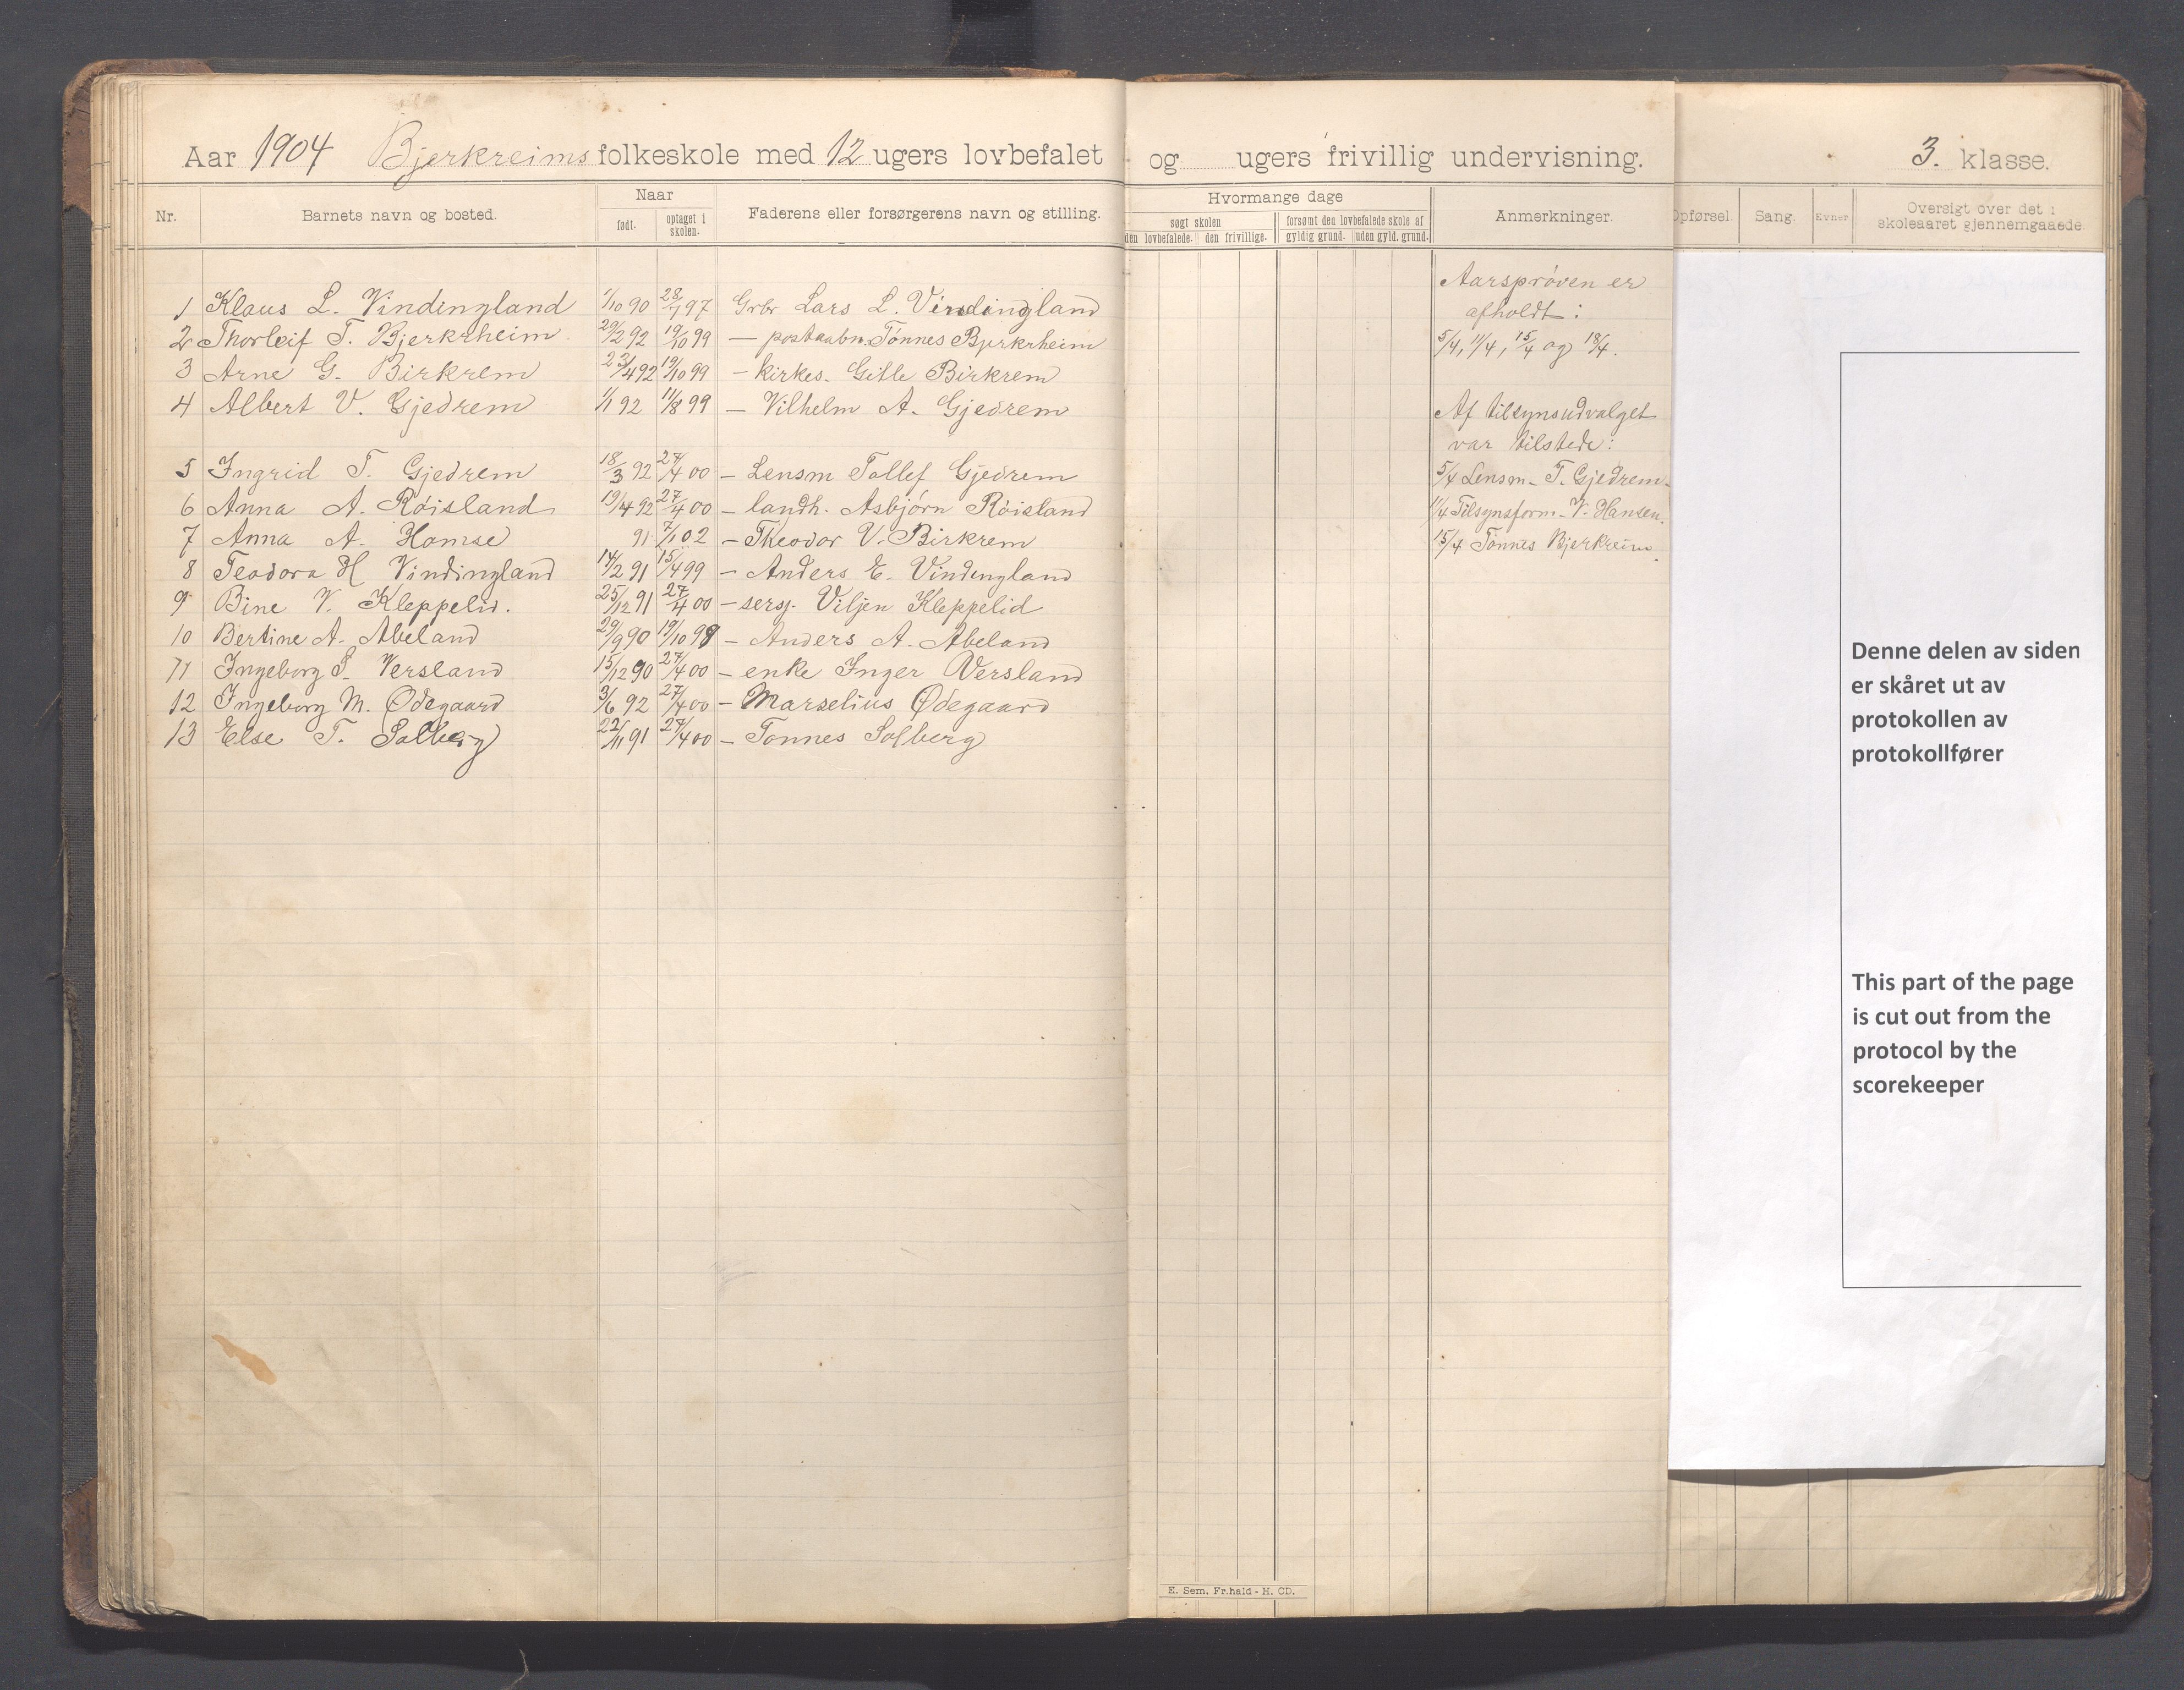 Aar 1904 Bjerkreims folkeskole med 12 ugers lovbefalet og ugers frivillig undervisning. 3. klasse.
Nr. Barnets navn og bosted. Naar født. optaget i skolen. Faderens eller forsørgerens navn og stilling. Hvormange dage søgt skolen den lovbefalede. den frivillige. forsømt den lovbefalede skole af gyldig grund. uden gyld. grund. Anmerkninger. Opførsel. Sang. Evner Oversigt over det i skoleaaret gjennemgaaede
1 Klaus L. Vindingland 1/10 90 28/1 97 Grbr Lars L. Vindingland
2 Thorleif T. Bjerkrheim 29/2 92 19/10 99 — postaabn. Tönnes Bjerkrheim
3 Arne G. Birkrem 23/4 92 19/10 99 — kirkes. Gitle Birkrem
4 Albert V. Gjedrem 1/1 92 11/8 99 — Vilhelm A. Gjedrem
5 Ingrid T. Gjedrem 18/3 92 27/4 00 — Lensm Tollef Gjedrem
6 Anna A. Röisland 19/4 92 27/4 00 — landh. Asbjörn Röisland
7 Anna A. Homse 91 7/1 02 — Theodor V. Birkrem
8 Teodora H Vindingland 14/2 91 15/4 99 — Anders E. Vindingland
9 Bine V. Kleppelid. 25/12 91 27/4 00 — sersj. Viljen Kleppelid
10 Bertine A. Abeland 29/9 90 19/10 98 — Anders A. Abeland
11 Ingeborg S. Versland 15/12 90 27/4 00 — enke Inger Versland
12 Ingeborg M. Ødegaard 3/6 92 27/4 00 — Marselius Ødegaard
13 Else T. Solberg 22/11 91 27/4 00 — Tonnes Solberg
Aarspröven er
afholdt:
5/4, 11/4, 15/4 og 18/4.
Af tilsynsudvalget
var tilstede:
5/4 Lensm. T. Gjedrem.
11/4 Tilsynsform. V. Hansen.
15/4 Tönnes Bjerkreim.
E. Sem, Fr.hald - H. CD.
Denne delen av siden
er skåret ut av
protokollen av
protokollfører
This part of the page
is cut out from the
protocol by the
scorekeeper